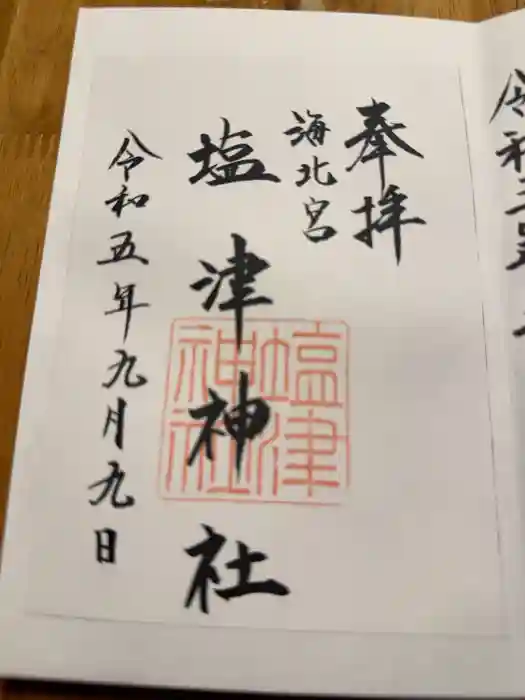 奉拝
海北宮
塩津神社
令和五年九月九日
塩津
神社
令和